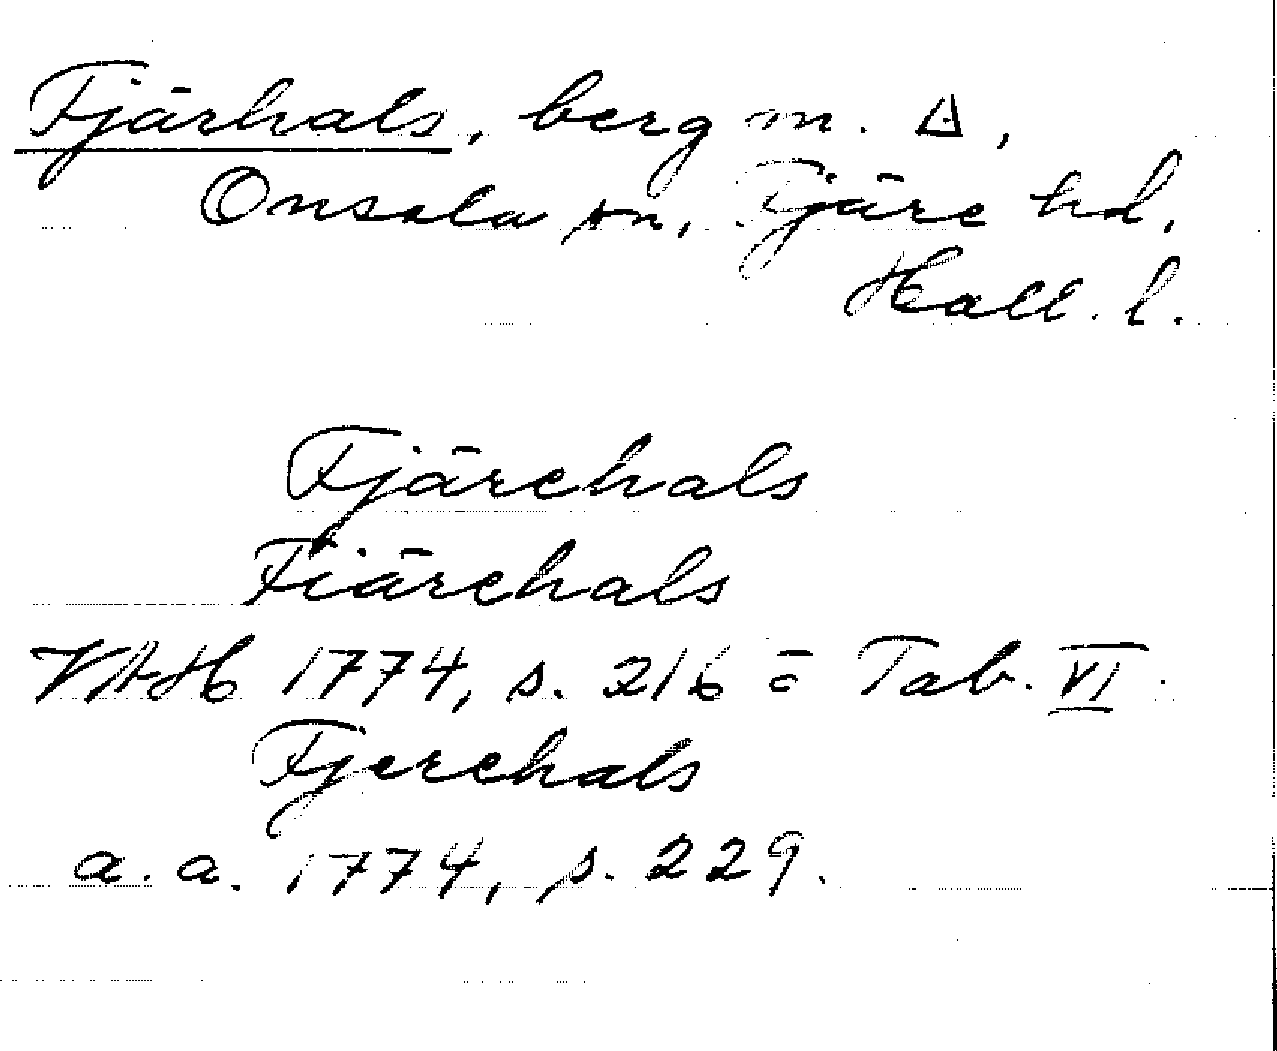 Fjärhals, berg m. △,
Onsala sn, Fjäre hd,
Hall. l.
Fjärehals
Fiärehals
VAH 1774, s. 216 = Tab. VI.
Fjerehals
a. a. 1774, s. 229.